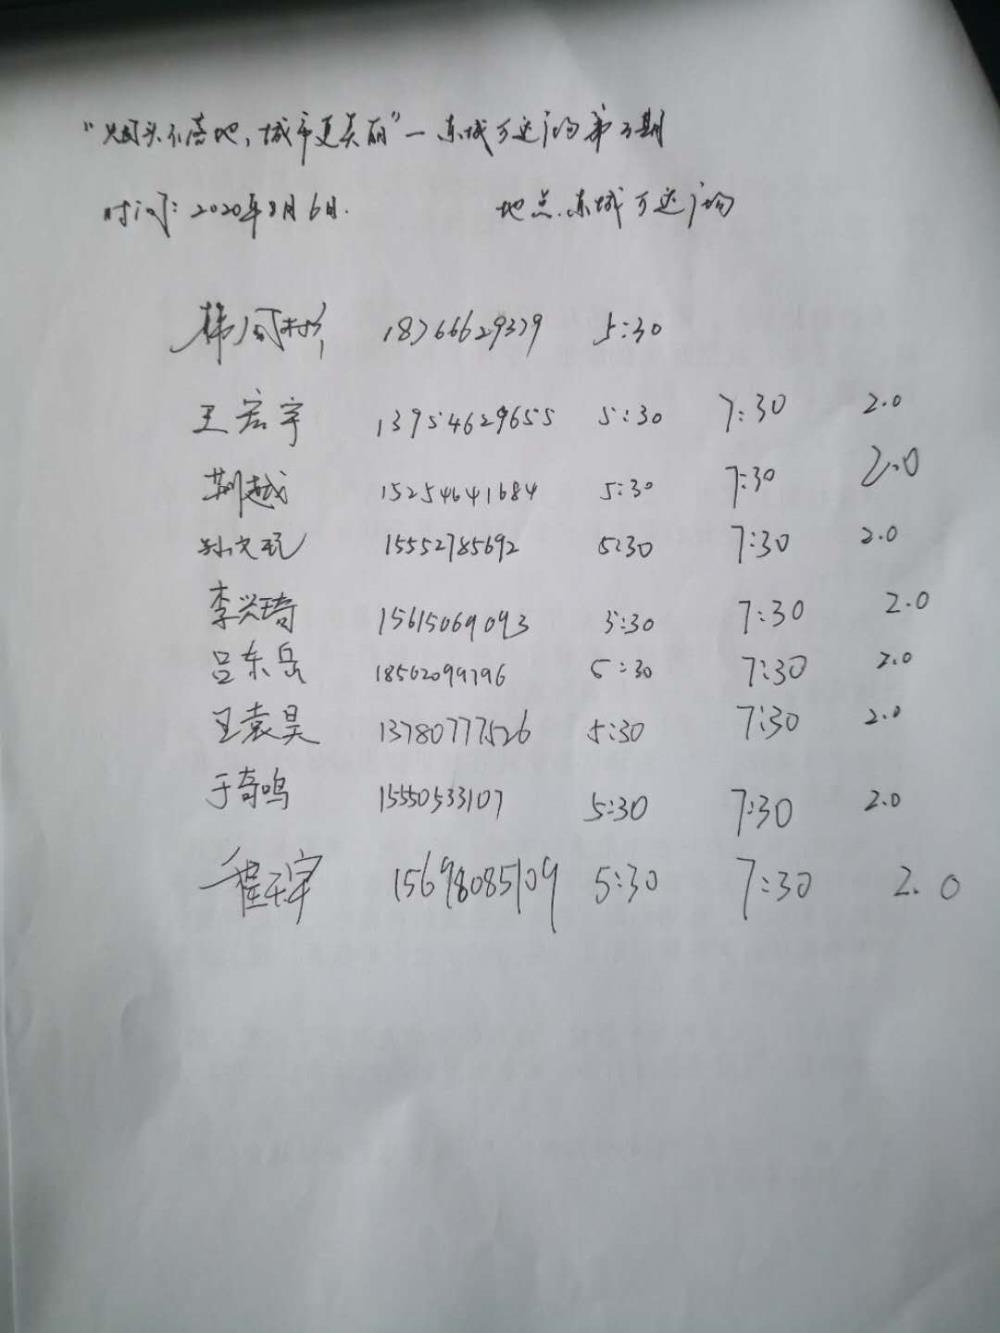 “烟头不落地,城市更美丽”一东城万达广场第3期
时间:2020年8月6日. 地点.东城万达广场
韩风彬 18766629379 5:30
王宏宇 13954629655 5:30 7:30 2.0
荆越 15254641684 5:30 7:30 2.0
孙文 15552785692 5:30 7:30 2.0
李兴琦 15615069093 5:30 7:30 2.0
吕东岳 18562099796 5:30 7:30 2.0
王袁昊 13780777526 5:30 7:30 2.0
于奇鸣 15550533107 5:30 7:30 2.0
程天宇 15698085109 5:30 7:30 2.0